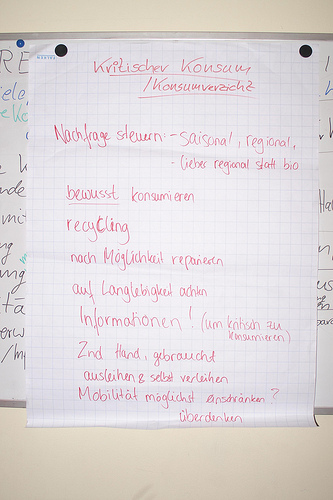 Kritischer Konsum
/Konsumverzicht
Nachfrage steuern: - saisonal, regional,
- lieber regional statt bio
bewusst konsumieren
recycling
nach Möglichkeit reparieren
auf Langlebigkeit achten
Informationen! (um kritisch zu
konsumieren)
2nd Hand, gebraucht
ausleihen & selbst verleihen
Mobilität möglichst einschränken?
überdenken